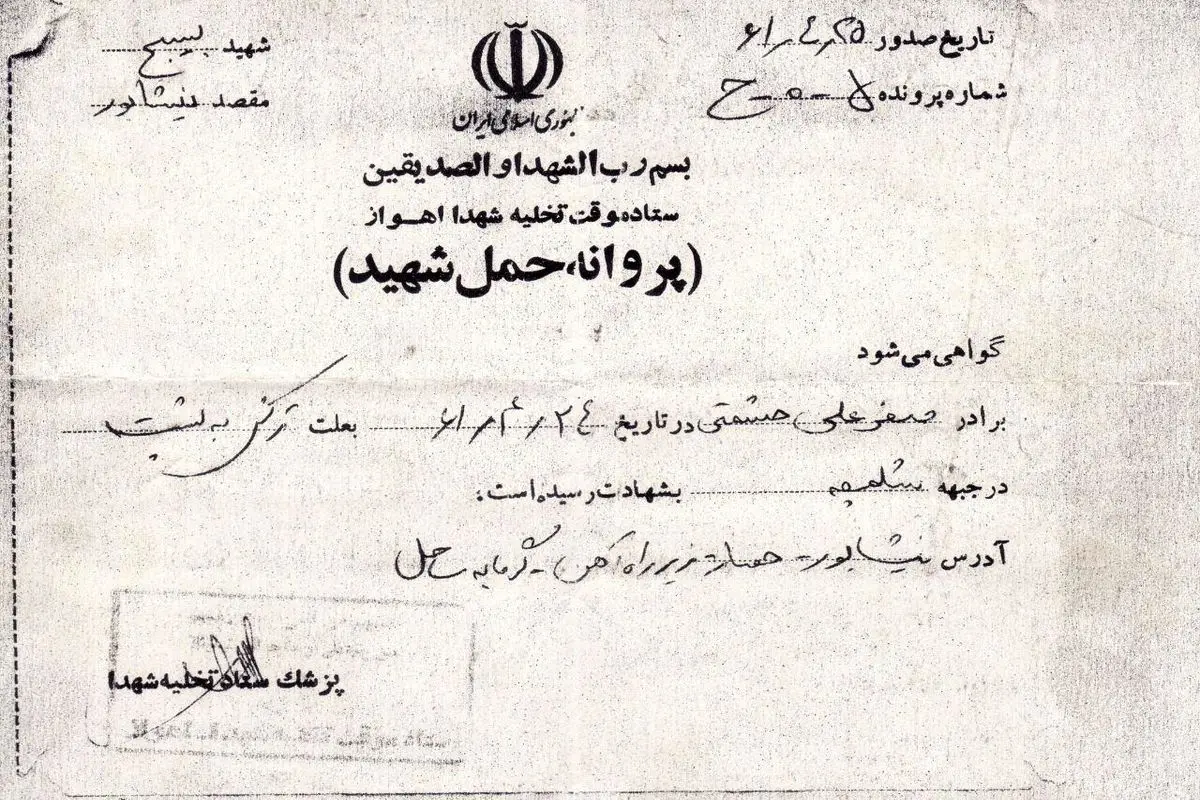 تاریخ صدور ۶۱/۴/۲۵
شماره پرونده
شهید بسیج
مقصد نیشابور
جمهوری اسلامی ایران
بسم رب الشهدا و الصدیقین
ستاد موقت تخلیه شهدا اهواز
(پروانه حمل شهید)
گواهی می‌شود
برادر صفرعلی حشمتی در تاریخ ۶۱/۴/۲۴ بعلت ترکش به پشت
در جبهه شلمچه بشهادت رسیده است.
آدرس نیشابور - حصار زیر راه آهن - گرمابه ساحل
پزشك ستاد تخلیه شهدا